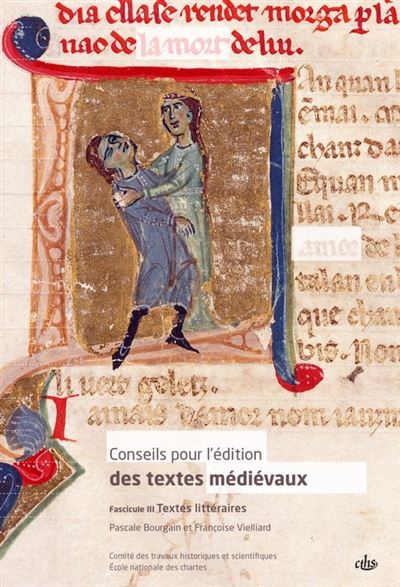 dia ellase rendet morga la
nao de la mort de lui.
An quan
chanz da
Equan
amor de
que chan
Non
Iamais damor nom
Conseils pour l'édition
des textes médiévaux
Fascicule III Textes littéraires
Pascale Bourgain et Françoise Vielliard
Comité des travaux historiques et scientifiques
École nationale des chartes
cths